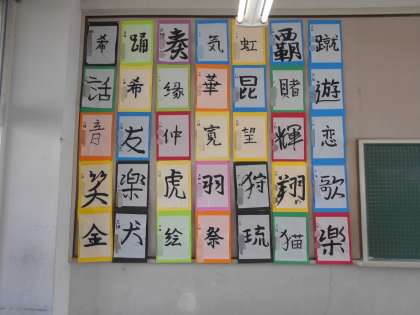 希 踊 奏 気 虹 覇 蹴
話 希 縁 華 昆 賭 遊
音 友 仲 寛 望 輝 恋
笑 楽 虎 羽 狩 翔 歌
金 犬 絵 祭 琉 猫 楽